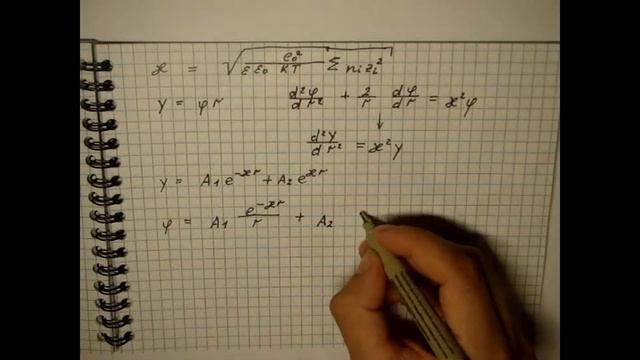 æ = √(e₀²/(εε₀ KT) Σ nᵢzᵢ²)
Y = φr d²φ/dr² + 2/r dφ/dr = æ²φ
↓
d²Y/dr² = æ²Y
Y = A₁e^(-ær) + A₂e^(ær)
φ = A₁ e^(-ær)/r + A₂